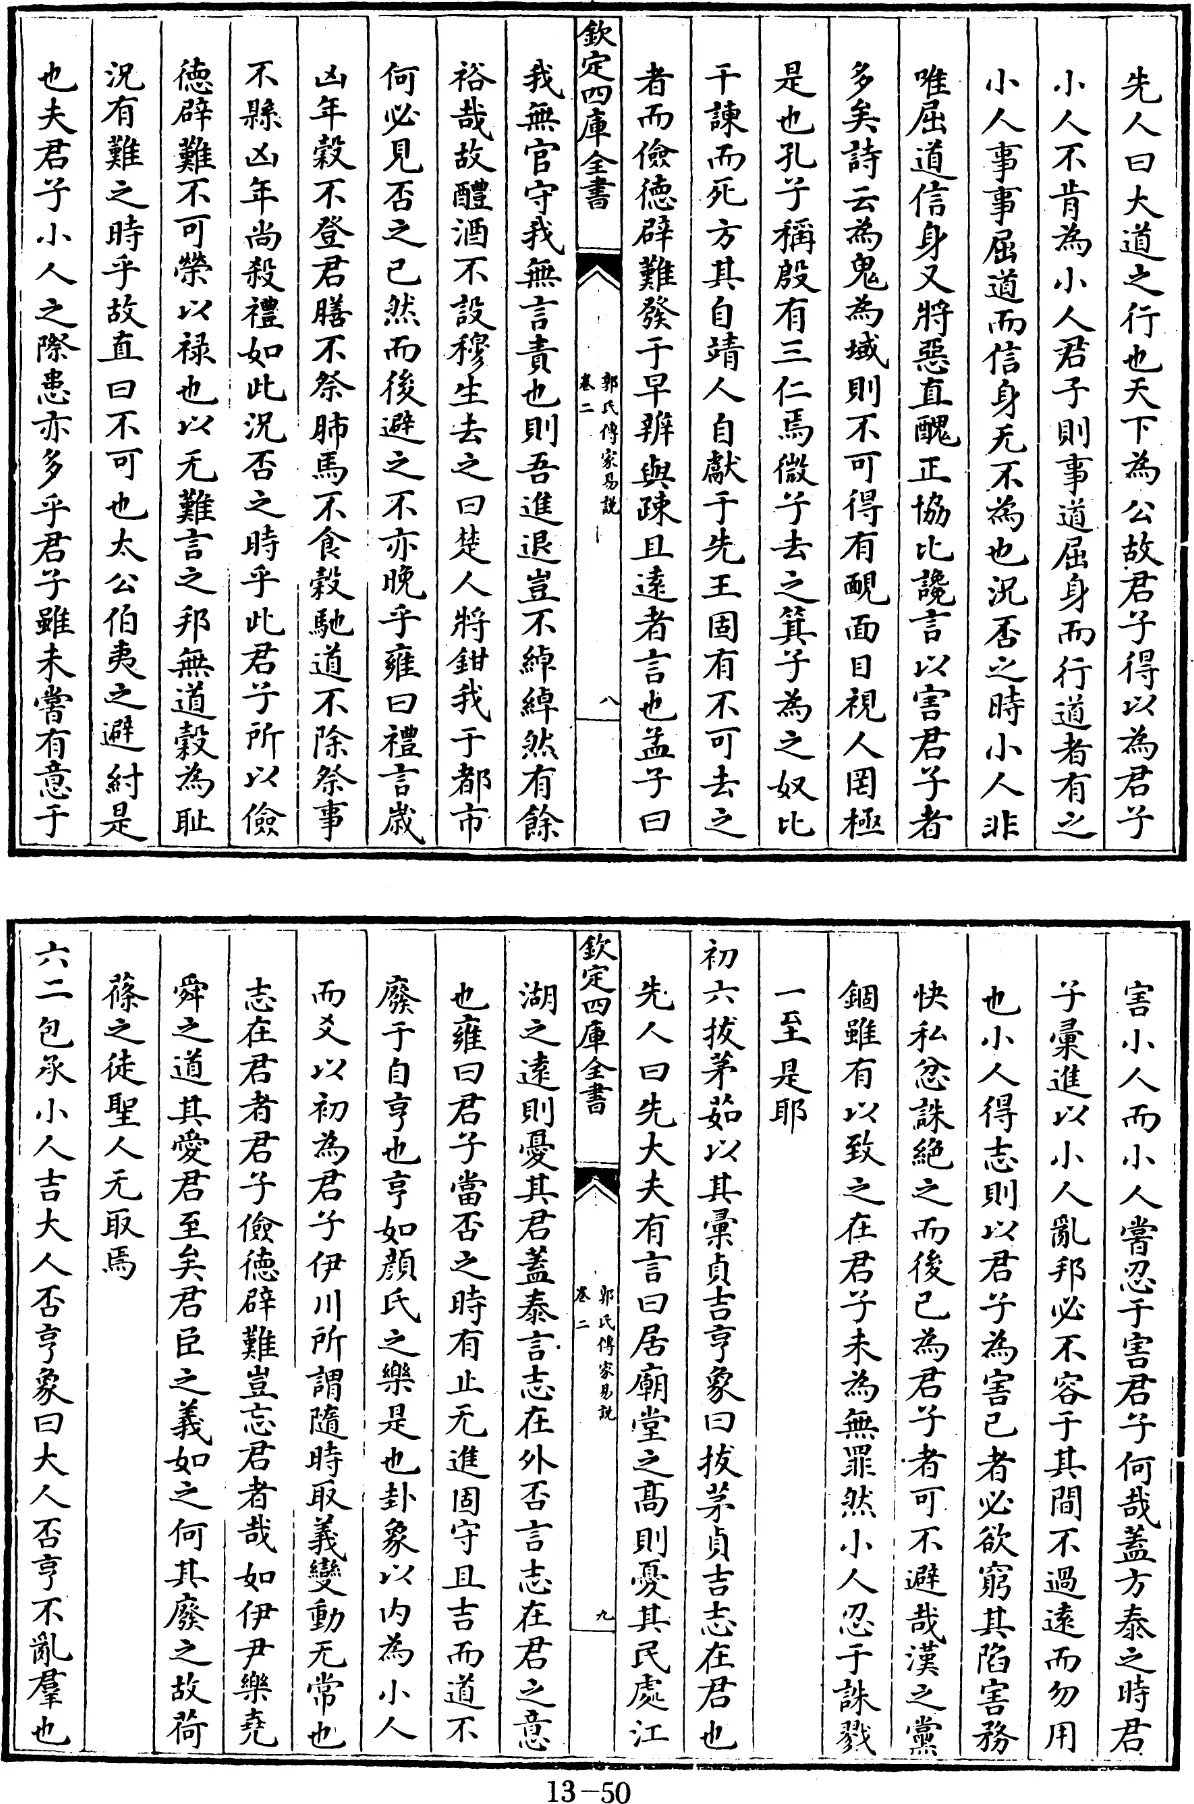 先人曰大道之行也天下為公故君子得以為君子
小人不肯為小人君子則事道屈身而行道者有之
小人事事屈道而信身无不為也況否之時小人非
唯屈道信身又將惡直醜正協比讒言以害君子者
多矣詩云為鬼為蜮則不可得有靦面目視人罔極
是也孔子稱殷有三仁焉微子去之箕子為之奴比
干諫而死方其自靖人自獻于先王固有不可去之
者而儉德辟難發于早辨與疎且遠者言也孟子曰
欽定四庫全書
郭氏傳家易說
卷二
八
我無官守我無言責也則吾進退豈不綽綽然有餘
裕哉故醴酒不設穆生去之曰楚人將鉗我于都市
何必見否之已然而後避之不亦晚乎雍曰禮言歲
凶年穀不登君膳不祭肺馬不食穀馳道不除祭事
不縣凶年尚殺禮如此況否之時乎此君子所以儉
德辟難不可榮以禄也以无難言之邦無道穀為恥
況有難之時乎故直曰不可也太公伯夷之避紂是
也夫君子小人之際患亦多乎君子雖未嘗有意于
害小人而小人嘗忍于害君子何哉蓋方泰之時君
子彙進以小人亂邦必不容于其間不過遠而勿用
也小人得志則以君子為害己者必欲窮其陷害務
快私忿誅絕之而後已為君子者可不避哉漢之黨
錮雖有以致之在君子未為無罪然小人忍于誅戮
一至是耶
初六拔茅茹以其彙貞吉亨象曰拔茅貞吉志在君也
先人曰先大夫有言曰居廟堂之高則憂其民處江
欽定四庫全書
郭氏傳家易說
卷二
九
湖之遠則憂其君蓋泰言志在外否言志在君之意
也雍曰君子當否之時有止无進固守且吉而道不
廢于自亨也亨如顏氏之樂是也卦象以内為小人
而爻以初為君子伊川所謂隨時取義變動无常也
志在君者君子儉德辟難豈忘君者哉如伊尹樂堯
舜之道其愛君至矣君臣之義如之何其廢之故荷
蓧之徒聖人无取焉
六二包承小人吉大人否亨象曰大人否亨不亂羣也
13-50